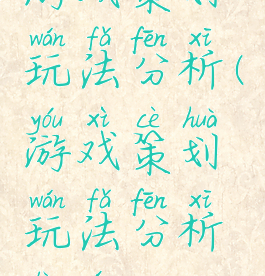 wán fǎ fēn xī
玩法分析(
yóu xì cè huà
游戏策划
wán fǎ fēn xī
玩法分析